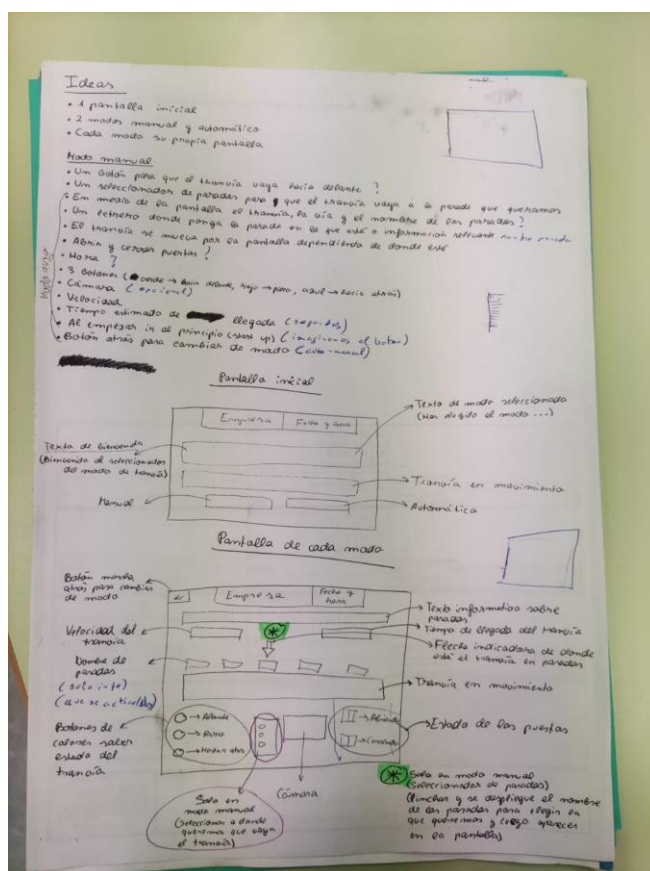 Ideas
• 1 pantalla inicial
• 2 modos manual y automático
• Cada modo su propia pantalla
Modo manual
• Un botón para que el tranvía vaya hacia delante ?
• Un seleccionador de paradas para que el tranvía vaya a la parada que queramos
• En medio de la pantalla el tranvía, la vía y el nombre de las paradas ?
• Un letrero donde ponga la parada en la que está o información relevante
• El tranvía se mueva por la pantalla dependiendo de donde esté
• Abrir y cerrar puertas ?
• Hora ?
• 3 Botones (verde → hacia delante, rojo → paro, azul → hacia atrás)
• Cámara (opcional)
• Velocidad
• Tiempo estimado de llegada (segundos)
• Al empezar ir al principio (start up) (imaginamos el botón)
• Botón atrás para cambiar de modo (auto-manual)
Modo auto
Pantalla inicial
Empresa
Fecha y hora
Texto de modo seleccionado
(Has elegido el modo ...)
Texto de bienvenida
(Bienvenido al seleccionador
del modo de tranvía)
Tranvía en movimiento
Manual
Automático
Pantalla de cada modo
Botón marcha
atrás para cambiar
de modo
←
Empresa
Fecha y
hora
Texto informativo sobre
paradas
Velocidad del
tranvía
Tiempo de llegada del tranvía
Flecha indicadora de donde
está el tranvía en paradas
Nombre de
paradas
(solo info)
(que se
Tranvía en movimiento
Botones de
colores saber
estado del
tranvía
→ Alante
→ Paro
→ Hacia atrás
→ Abierto
→ Cerrado
Estado de las puertas
Cámara
Solo en
modo manual
(seleccionar a donde
queremos que vaya
el tranvía)
Solo en modo manual
(Seleccionador de paradas)
(Pinchar y se despliegue el nombre
de las paradas para elegir la
que queremos y luego aparecer
en la pantalla)